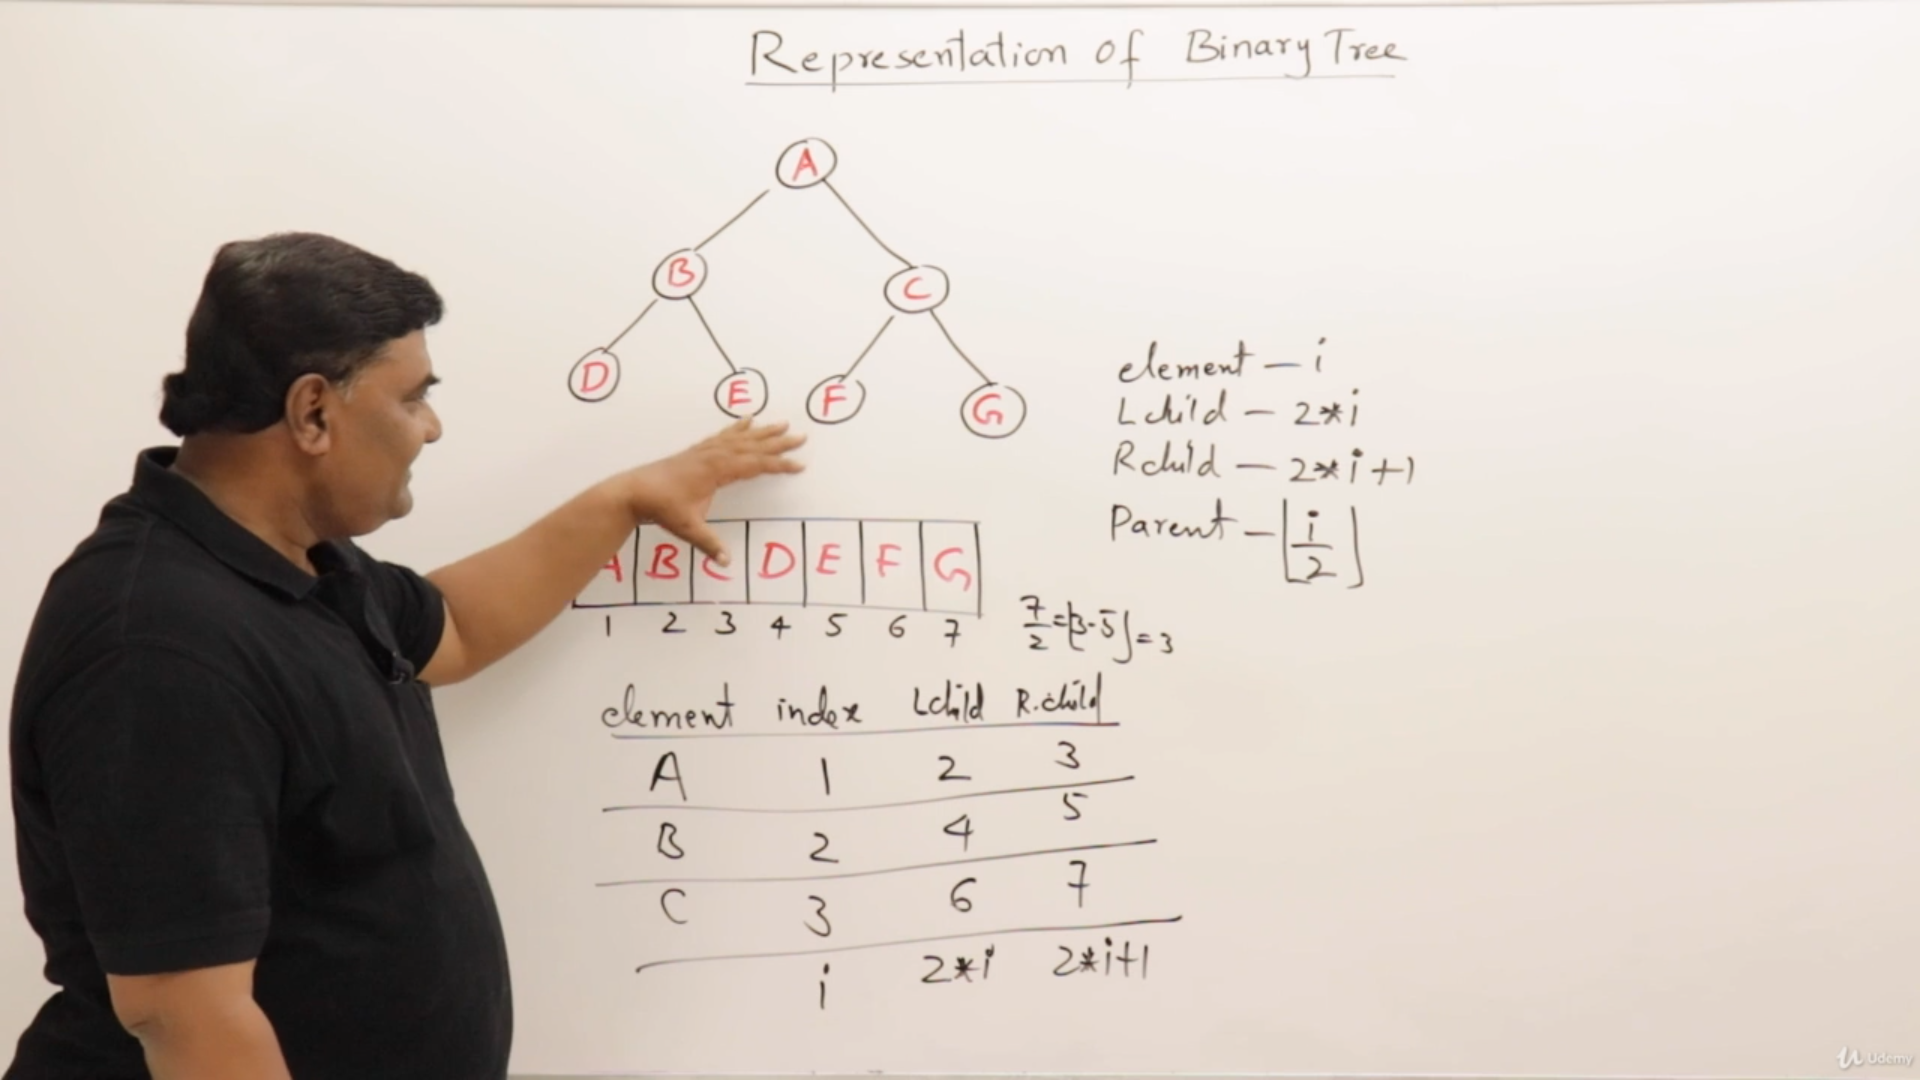 Representation of Binary Tree
A
B
C
D
E
F
G
element — i
Lchild — 2*i
Rchild — 2*i+1
Parent — ⌊i/2⌋
A B C D E F G
1 2 3 4 5 6 7
7/2 = ⌊3.5⌋ = 3
element index Lchild R.child
A 1 2 3
B 2 4 5
C 3 6 7
i 2*i 2*i+1
Udemy